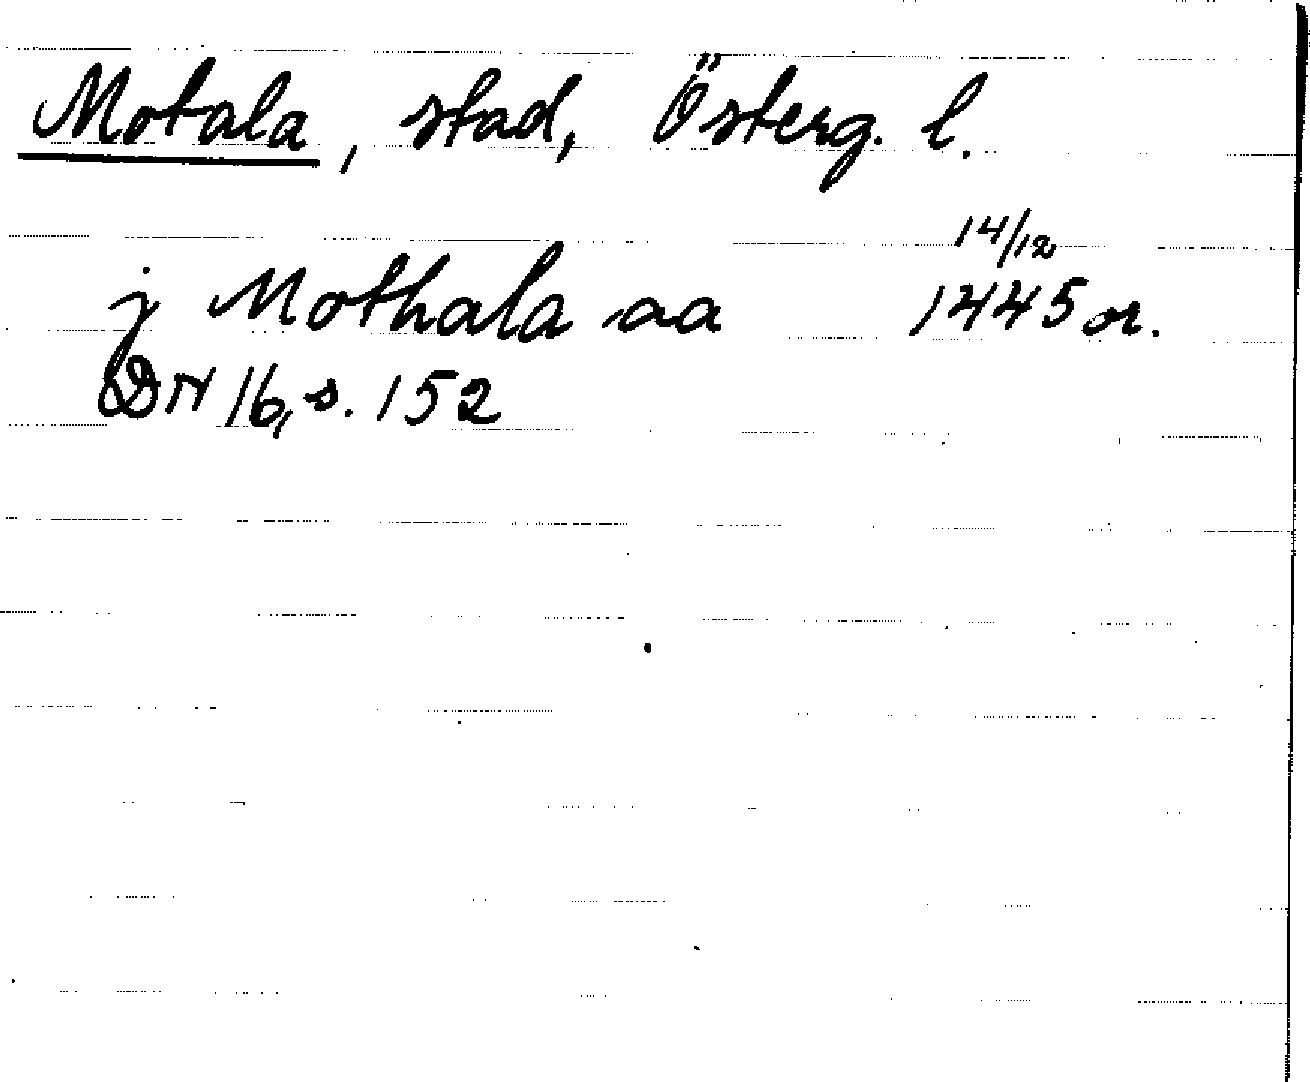 Motala, stad, Österg. l.
14/12
j Mothala aa 1445 or.
DN 16, s. 152